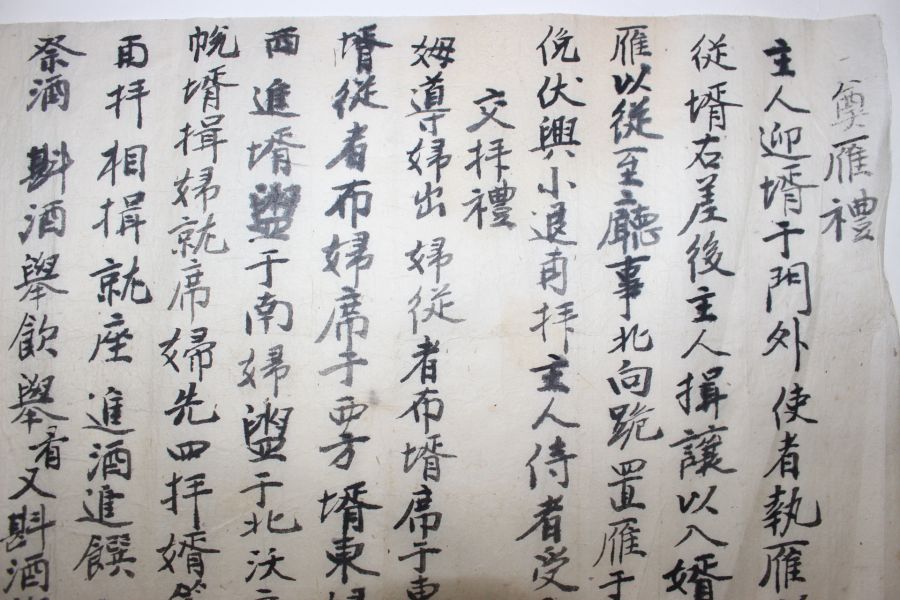 奠雁禮
主人迎壻于門外使者執雁
從壻右差後主人揖讓以入壻
雁以從至廳事北向跪置雁于
俛伏興小退再拝主人侍者受
交拝禮
姆導婦出婦從者布壻席于東
壻從者布婦席于西方壻東婦
西進壻盥于南婦盥于北沃
帨壻揖婦就席婦先四拝壻答
再拝相揖就座進酒進饌
祭酒斟酒舉飮舉肴又斟酒